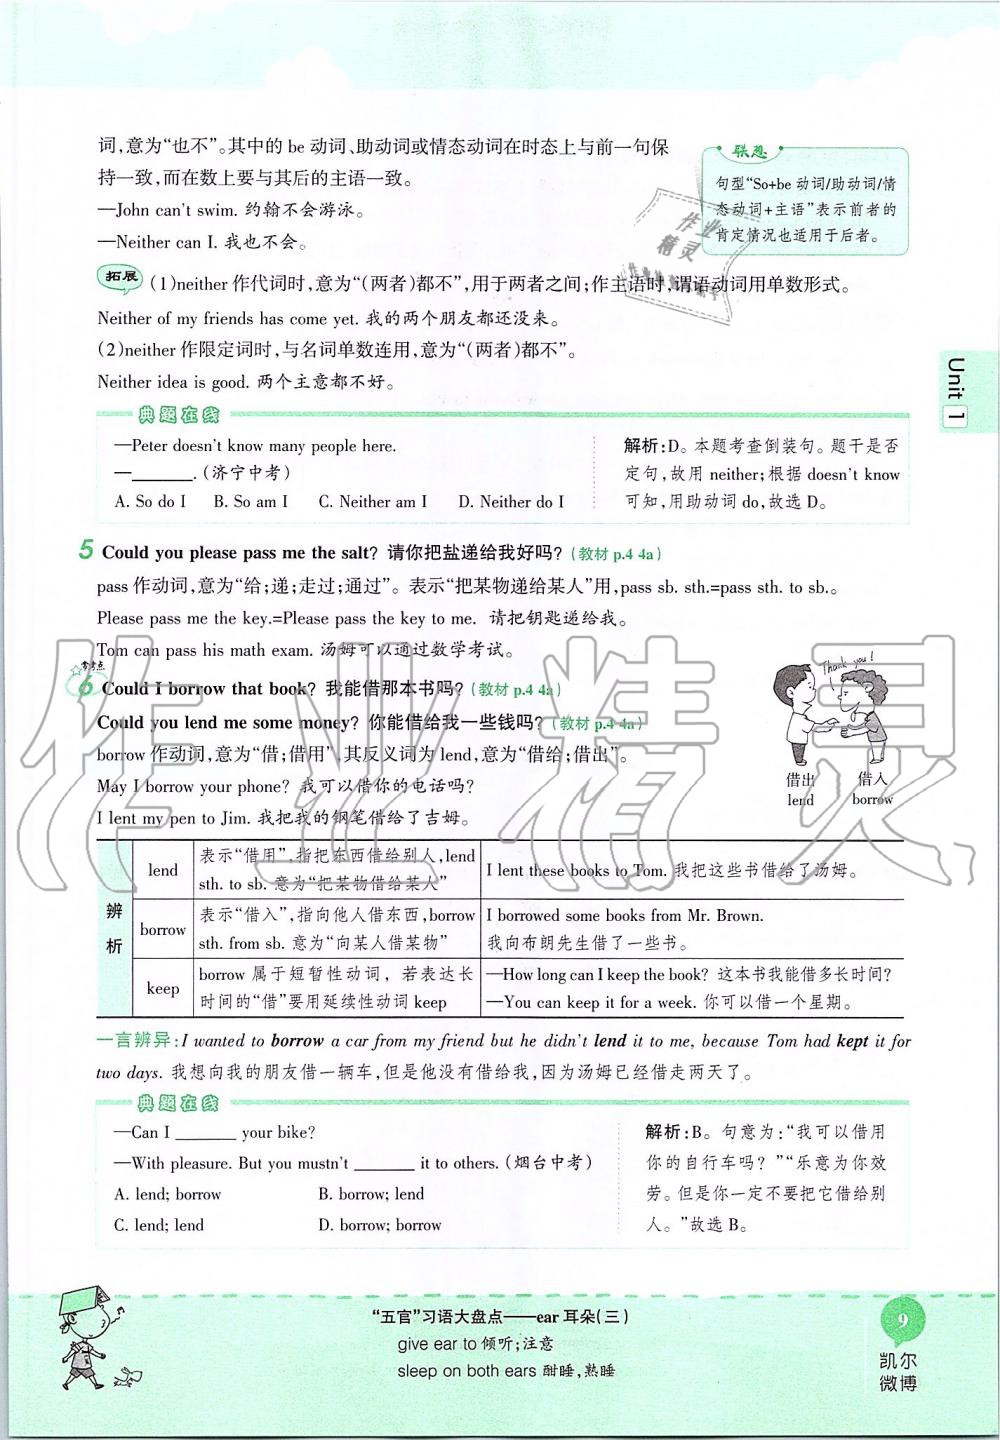 词,意为“也不”。其中的 be 动词、助动词或情态动词在时态上与前一句保
持一致,而在数上要与其后的主语一致。
—John can't swim. 约翰不会游泳。
—Neither can I. 我也不会。
联想
句型“So+be 动词/助动词/情
态动词+主语”表示前者的
肯定情况也适用于后者。
拓展 (1)neither 作代词时,意为“(两者)都不”,用于两者之间;作主语时,谓语动词用单数形式。
Neither of my friends has come yet. 我的两个朋友都还没来。
(2)neither 作限定词时,与名词单数连用,意为“(两者)都不”。
Neither idea is good. 两个主意都不好。
Unit 1
典题在线
—Peter doesn't know many people here.
—________.(济宁中考)
A. So do I B. So am I C. Neither am I D. Neither do I
解析:D。本题考查倒装句。题干是否
定句,故用 neither;根据 doesn't know
可知,用助动词 do,故选 D。
5 Could you please pass me the salt? 请你把盐递给我好吗?(教材 p.4 4a)
pass 作动词,意为“给;递;走过;通过”。表示“把某物递给某人”用,pass sb. sth.=pass sth. to sb.。
Please pass me the key.=Please pass the key to me. 请把钥匙递给我。
Tom can pass his math exam. 汤姆可以通过数学考试。
常考点
6 Could I borrow that book? 我能借那本书吗?(教材 p.4 4a)
Could you lend me some money? 你能借给我一些钱吗?(教材 p.4 4a)
borrow 作动词,意为“借;借用”,其反义词为 lend,意为“借给;借出”。
May I borrow your phone? 我可以借你的电话吗?
I lent my pen to Jim. 我把我的钢笔借给了吉姆。
Thank you!
借出 借入
lend borrow
辨析
lend 表示“借用”,指把东西借给别人,lend
sth. to sb. 意为“把某物借给某人” I lent these books to Tom. 我把这些书借给了汤姆。
borrow 表示“借入”,指向他人借东西,borrow
sth. from sb. 意为“向某人借某物” I borrowed some books from Mr. Brown.
我向布朗先生借了一些书。
keep borrow 属于短暂性动词,若表达长
时间的“借”要用延续性动词 keep —How long can I keep the book? 这本书我能借多长时间?
—You can keep it for a week. 你可以借一个星期。
一言辨异:I wanted to borrow a car from my friend but he didn't lend it to me, because Tom had kept it for
two days. 我想向我的朋友借一辆车,但是他没有借给我,因为汤姆已经借走两天了。
典题在线
—Can I _______ your bike?
—With pleasure. But you mustn't _______ it to others.(烟台中考)
A. lend; borrow B. borrow; lend
C. lend; lend D. borrow; borrow
解析:B。句意为:“我可以借用
你的自行车吗?”“乐意为你效
劳。但是你一定不要把它借给别
人。”故选 B。
“五官”习语大盘点——ear 耳朵(三)
give ear to 倾听;注意
sleep on both ears 酣睡,熟睡
9
凯尔
微博
作业精灵
作业
精灵